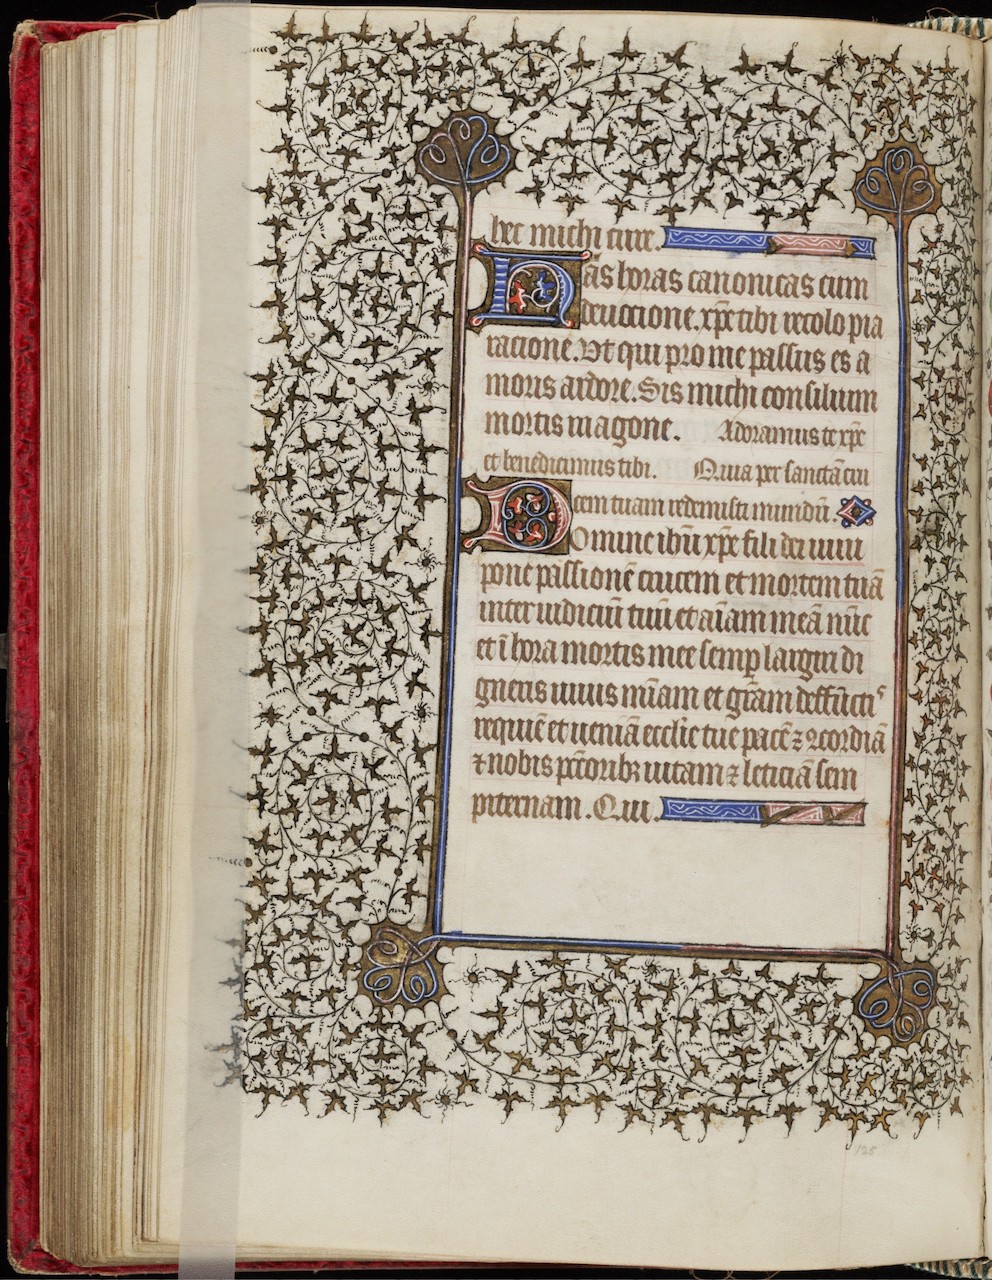 hec michi cure.
Has horas canonicas cum
deuocione. xp̄e tibi recolo pia
racione. Vt qui pro me passus es a
moris ardore. Sis michi consilium
mortis in agone. Adoramus te xp̄e
et benedicimus tibi. Quia per sanctā cru
cem tuam redemisti mundū.
Domine ihū xp̄e fili dei uiui
pone passionē crucem et mortem tuā
inter iudiciū tuū et aīam meā nūc
et ī hora mortis mee semp largiri di
gneris uiuis mīam et grām deffūctis
requiē et ueniā eccl̄ie tue pacē ⁊ ꝯcordiā
⁊ nobis pctōribꝫ uitam ⁊ leticiā sem
piternam. Qui.
125